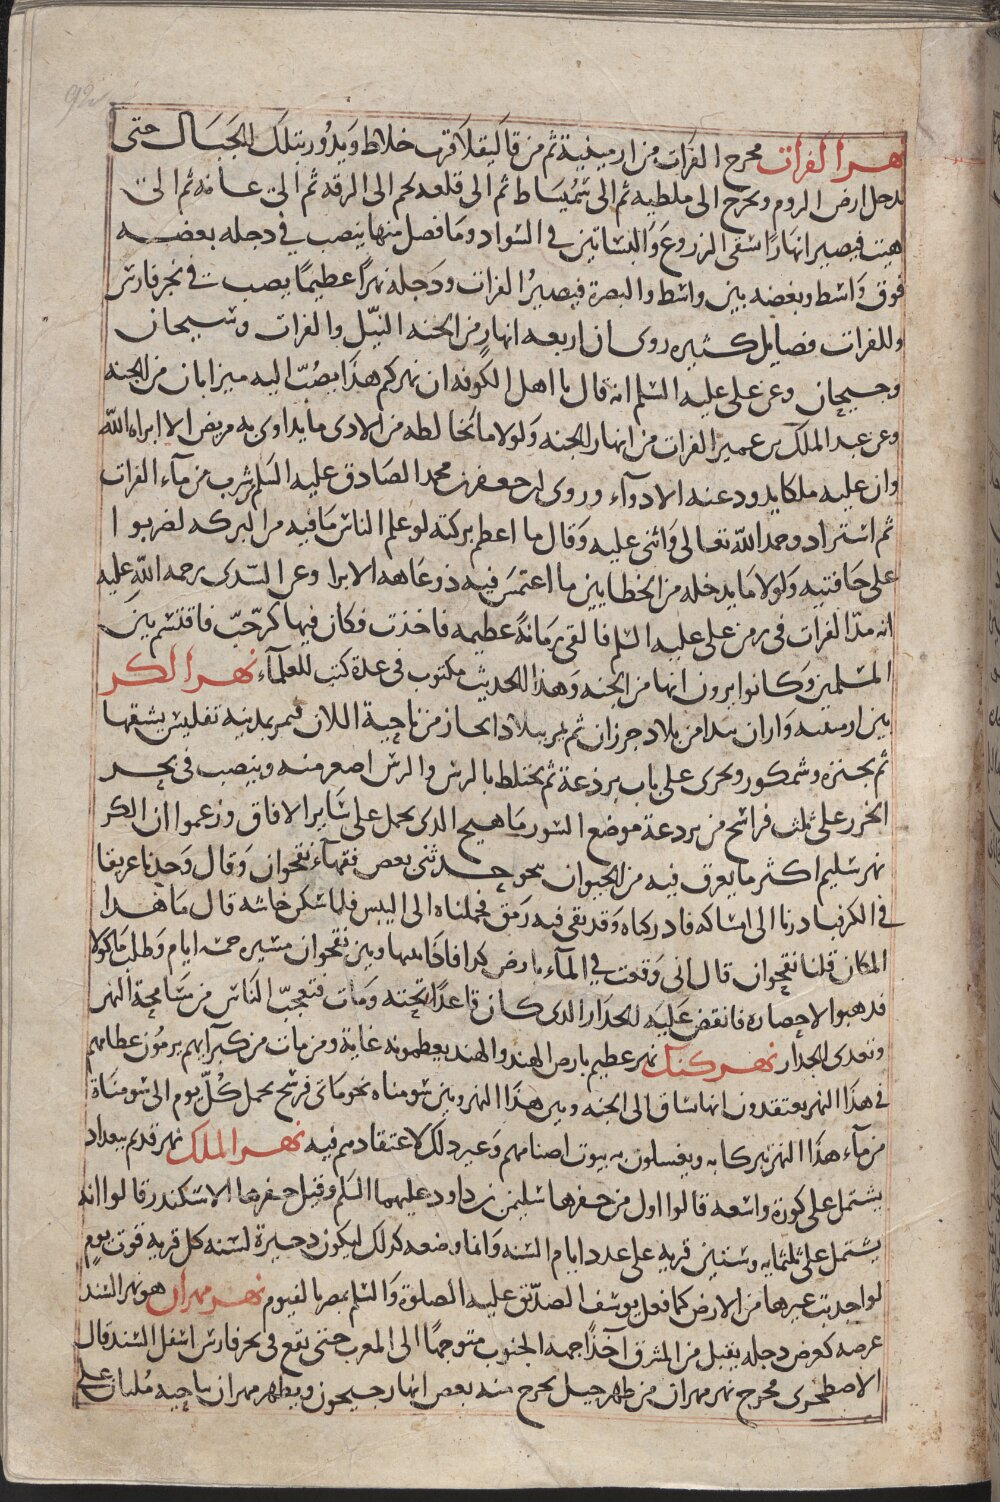 92
نهر الفرات مخرج الفرات من ارمينية ثم من قاليقلا قرب خلاط ويدور بتلك الجبال حتى
يدخل ارض الروم ويخرج الى ملطيه ثم الى شميساط ثم الى قلعه نجم الى الرقه ثم الى عانه ثم الى
هيت فيصير انهارًا تسقى الزروع والبساتين في السواد وما فضل منها ينصب في دجله بعضه
فوق واسط وبعضه بين واسط والبصرة فيصير الفرات ودجله نهرًا عظيمًا يصب في بحر فارس
وللفرات فضايل كثيره روى ان اربعه انهارٍ من الجنه النيل والفرات وسيحان
وجيحان وعن على عليه السلم انه قال يا اهل الكوفه ان نهركم هذا يصُبّ اليه ميزابان من الجنه
وعن عبد الملك بن عمير الفرات من انهار الجنه ولولا ما يخالطه من الاذى ما يداوى به مريض الا ابراه الله
وان عليه ملكا يذود عنه الادوآء وروى ان جعفر بن محمد الصادق عليه السلم شرب من مآء الفرات
ثم استزاد وحمد الله تعالى واثنى عليه وقال ما اعظم بركته لو علم الناس ما فيه من البركه لضربوا
على حافتيه ولولا ما يدخله من الخطايين ما اغتمس فيه ذو عاهه الا برا وعن السدى رحمه الله عليه
انه مدّ الفرات فى زمن على عليه السلم فالقى رمانةً عظيمه فاخذت فكان فيها كرّ حَبّ فاقتسم بين
المسلمين وكانوا يرون انها من الجنه وهذا الحديث مكتوب فى عدة كتب للعلمآء نهر الكر
بين ارمينيه واران يبدا من بلاد جرزان ثم يمر ببلاد ابخاز من ناحية اللان فيمر بمدينه تفليس يشقها
ثم بجنزه وشمكور ويجرى على باب برذعة ثم يختلط بالرس والرس اصغر منه وينصب فى بحر
الخزر على ثلث فراسخ من بردعة موضع السورماهيج الذى يحمل على ساير الافاق وزعموا ان الكر
نهر سليم اكثر ما يغرق فيه من الحيوان ينجو حدثنى بعض فقهآء نقجوان وقال وجدنا غريقا
فى الكر فبادرنا الى امساكه فادركناه وقد بقى فيه رمق فحملناه الى اليبس فلما سكن جاشه قال ما هذا
المكان قلنا نقجوان قال انى وقعت في المآء بارض كذا فاذا بينها وبين نقجوان مسيره خمسه ايام وطلب ماكولا
فذهبوا لاحضاره فانقض عليه الجدار الذى كان قاعدًا تحته ومات فتعجب الناس من مسامحة النهر
وتعدى الجدار نهر كنك نهر عظيم بارض الهند والهند يعظمونه غاية ومن مات من كبرآيهم يرمون عظامهم
فى هذا النهر يعتقدون انها تساق الى الجنه وبين هذا النهر وبين سومناه نحو ماتى فرسخ يحمل كُلّ يوم الى سومناة
من مآء هذا النهر يتبركا به ويغسلون به بيوت اصنامهم وغير ذلك لاعتقادهم فيه نهر الملك نهر قديم ببغداد
يشتمل على كورة واسعه قالوا اول من حفرها سليمن بن داود عليهما السلم وقيل حفرها الاسكندر قالوا انه
يشتمل على ثلثمايه وستين قريه على عدد ايام السنه وانما وضعه كذلك ليكون ذخيرة لسنه كل قريه قوت يوم
لو اجدبت غيرها من الارض كما فعل يوسف الصدّيق عليه الصلوة والسلم بمصر بالفيوم نهر مهران هو نهر السند
عرضه كعرض دجله يقبل من المشرق آخذًا جهه الجنوب متوجهًا الى المغرب حتى يقع فى بحر فارس اسفل السند قال
الاصطخرى مخرج نهر مهران من ظهر جبل يخرج منه بعض انهار جيحون ويظهر مهران بناحيه مُلتان على